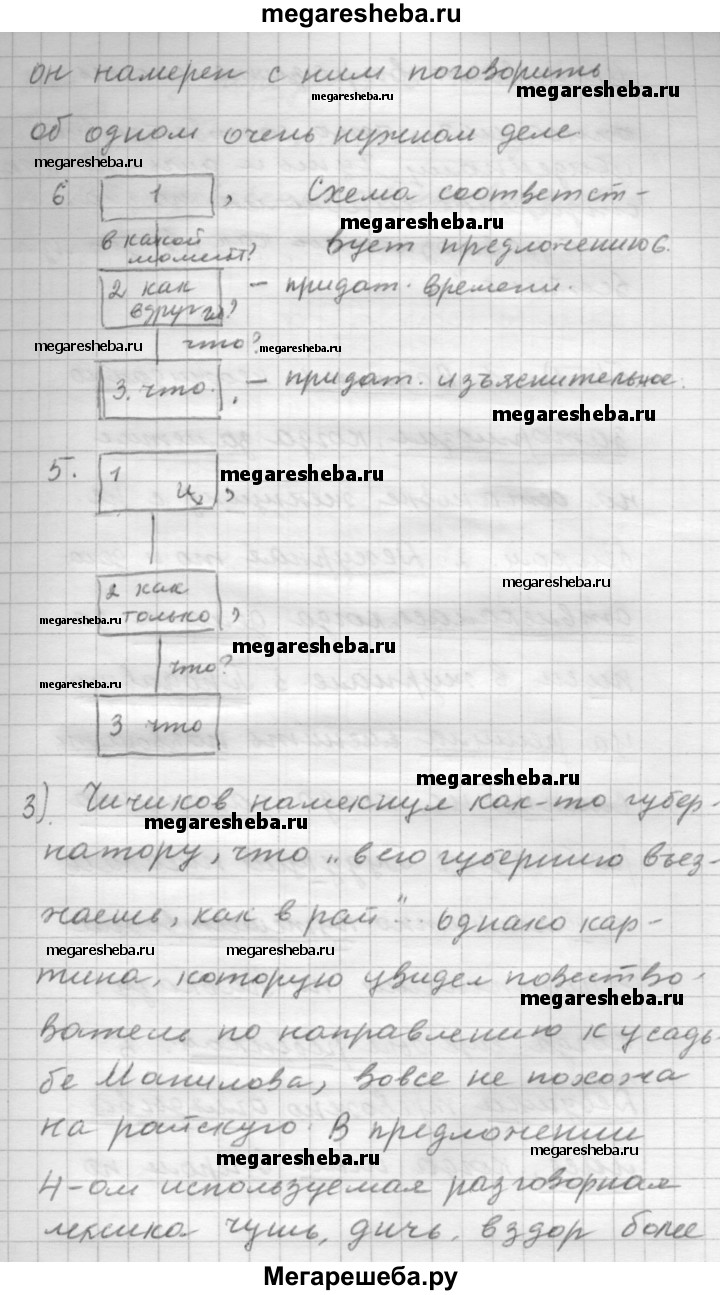 megaresheba.ru
он намерен с ним поговорить
megaresheba.ru megaresheba.ru
об одном очень нужном деле
megaresheba.ru
6 1 , Схема соответст-
megaresheba.ru
в какой момент? вует предложению 6.
2 как вдруг гл, – придат. времени.
megaresheba.ru что? megaresheba.ru
3. что. , – придат. изъяснительное.
megaresheba.ru
5. 1 , megaresheba.ru
megaresheba.ru
2 как
megaresheba.ru только ,
megaresheba.ru
что?
megaresheba.ru
3 что
megaresheba.ru
3). Чичиков намекнул как-то губер-
megaresheba.ru
натору, что „в его губернию въез-
жаешь, как в рай". Однако кар-
megaresheba.ru megaresheba.ru
тина, которую увидел повество-
megaresheba.ru
ватель по направлению к усадь-
бе Манилова, вовсе не похожа
на райскую. В предложении
megaresheba.ru megaresheba.ru
4-ом используемая разговорная
лексика чушь, дичь, вздор более
Мегарешеба.ру